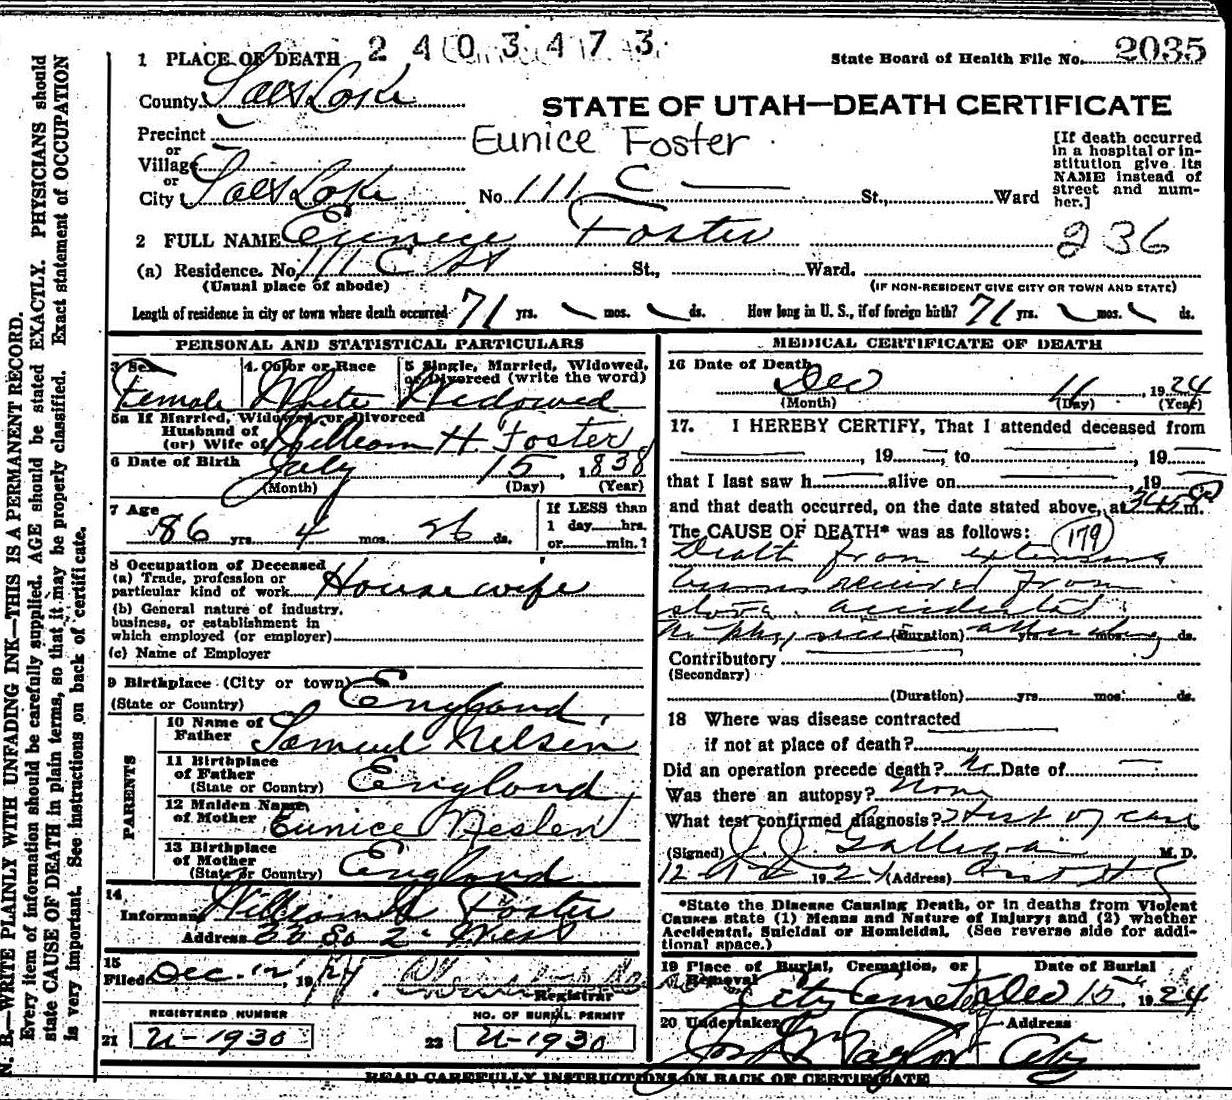 N. B.—WRITE PLAINLY WITH UNFADING INK—THIS IS A PERMANENT RECORD.
Every item of information should be carefully supplied. AGE should be stated EXACTLY. PHYSICIANS should
state CAUSE OF DEATH in plain terms, so that it may be properly classified. Exact statement of OCCUPATION
is very important. See instructions on back of certificate.
1 PLACE OF DEATH 2403473
State Board of Health File No. 2035
County Salt Lake
STATE OF UTAH—DEATH CERTIFICATE
Precinct
Eunice Foster
or
Village
or
City Salt Lake No. 111 C St., Ward
[If death occurred
in a hospital or in-
stitution give its
NAME instead of
street and num-
ber.]
2 FULL NAME Eunice Foster
236
(a) Residence. No. 111 C St St., Ward.
(Usual place of abode) (IF NON-RESIDENT GIVE CITY OR TOWN AND STATE)
Length of residence in city or town where death occurred 71 yrs. mos. ds. How long in U. S., if of foreign birth? 71 yrs. mos. ds.
PERSONAL AND STATISTICAL PARTICULARS
3 Sex 4 Color or Race 5 Single, Married, Widowed,
or Divorced (write the word)
Female White Widowed
5a If Married, Widowed or Divorced
Husband of
(or) Wife of William H. Foster
6 Date of Birth July 15, 1838
(Month) (Day) (Year)
7 Age
86 yrs. 4 mos. 26 ds.
If LESS than
1 day hrs.
or min.?
8 Occupation of Deceased
(a) Trade, profession or
particular kind of work Housewife
(b) General nature of industry,
business, or establishment in
which employed (or employer)
(c) Name of Employer
9 Birthplace (City or town)
(State or Country) England
PARENTS
10 Name of
Father Samuel Nelsen
11 Birthplace
of Father
(State or Country) England
12 Maiden Name
of Mother Eunice Neslen
13 Birthplace
of Mother
(State or Country) England
14
Informant William H Foster
Address 33 So 2 West
15
Filed Dec. 12, 1924
Registrar
REGISTERED NUMBER NO. OF BURIAL PERMIT
21 U-1930 22 U-1930
MEDICAL CERTIFICATE OF DEATH
16 Date of Death
Dec 11, 1924
(Month) (Day) (Year)
17. I HEREBY CERTIFY, That I attended deceased from
, 19 , to , 19
that I last saw h alive on , 19
and that death occurred, on the date stated above, at 345 P m.
The CAUSE OF DEATH* was as follows: 179
Death from extensive
burns received from
stove. accidental
No physician attending
(Duration) yrs. mos. ds.
Contributory
(Secondary)
(Duration) yrs. mos. ds.
18 Where was disease contracted
if not at place of death?
Did an operation precede death? No Date of
Was there an autopsy? None
What test confirmed diagnosis? Hist of case
(Signed) J. J. Galligan M. D.
12 1924 (Address)
*State the Disease Causing Death, or in deaths from Violent
Causes state (1) Means and Nature of Injury; and (2) whether
Accidental, Suicidal or Homicidal. (See reverse side for addi-
tional space.)
19 Place of Burial, Cremation, or
Removal Date of Burial
City Cemetery Dec 15 1924
20 Undertaker Address
Jos Wm Taylor City
READ CAREFULLY INSTRUCTIONS ON BACK OF CERTIFICATE